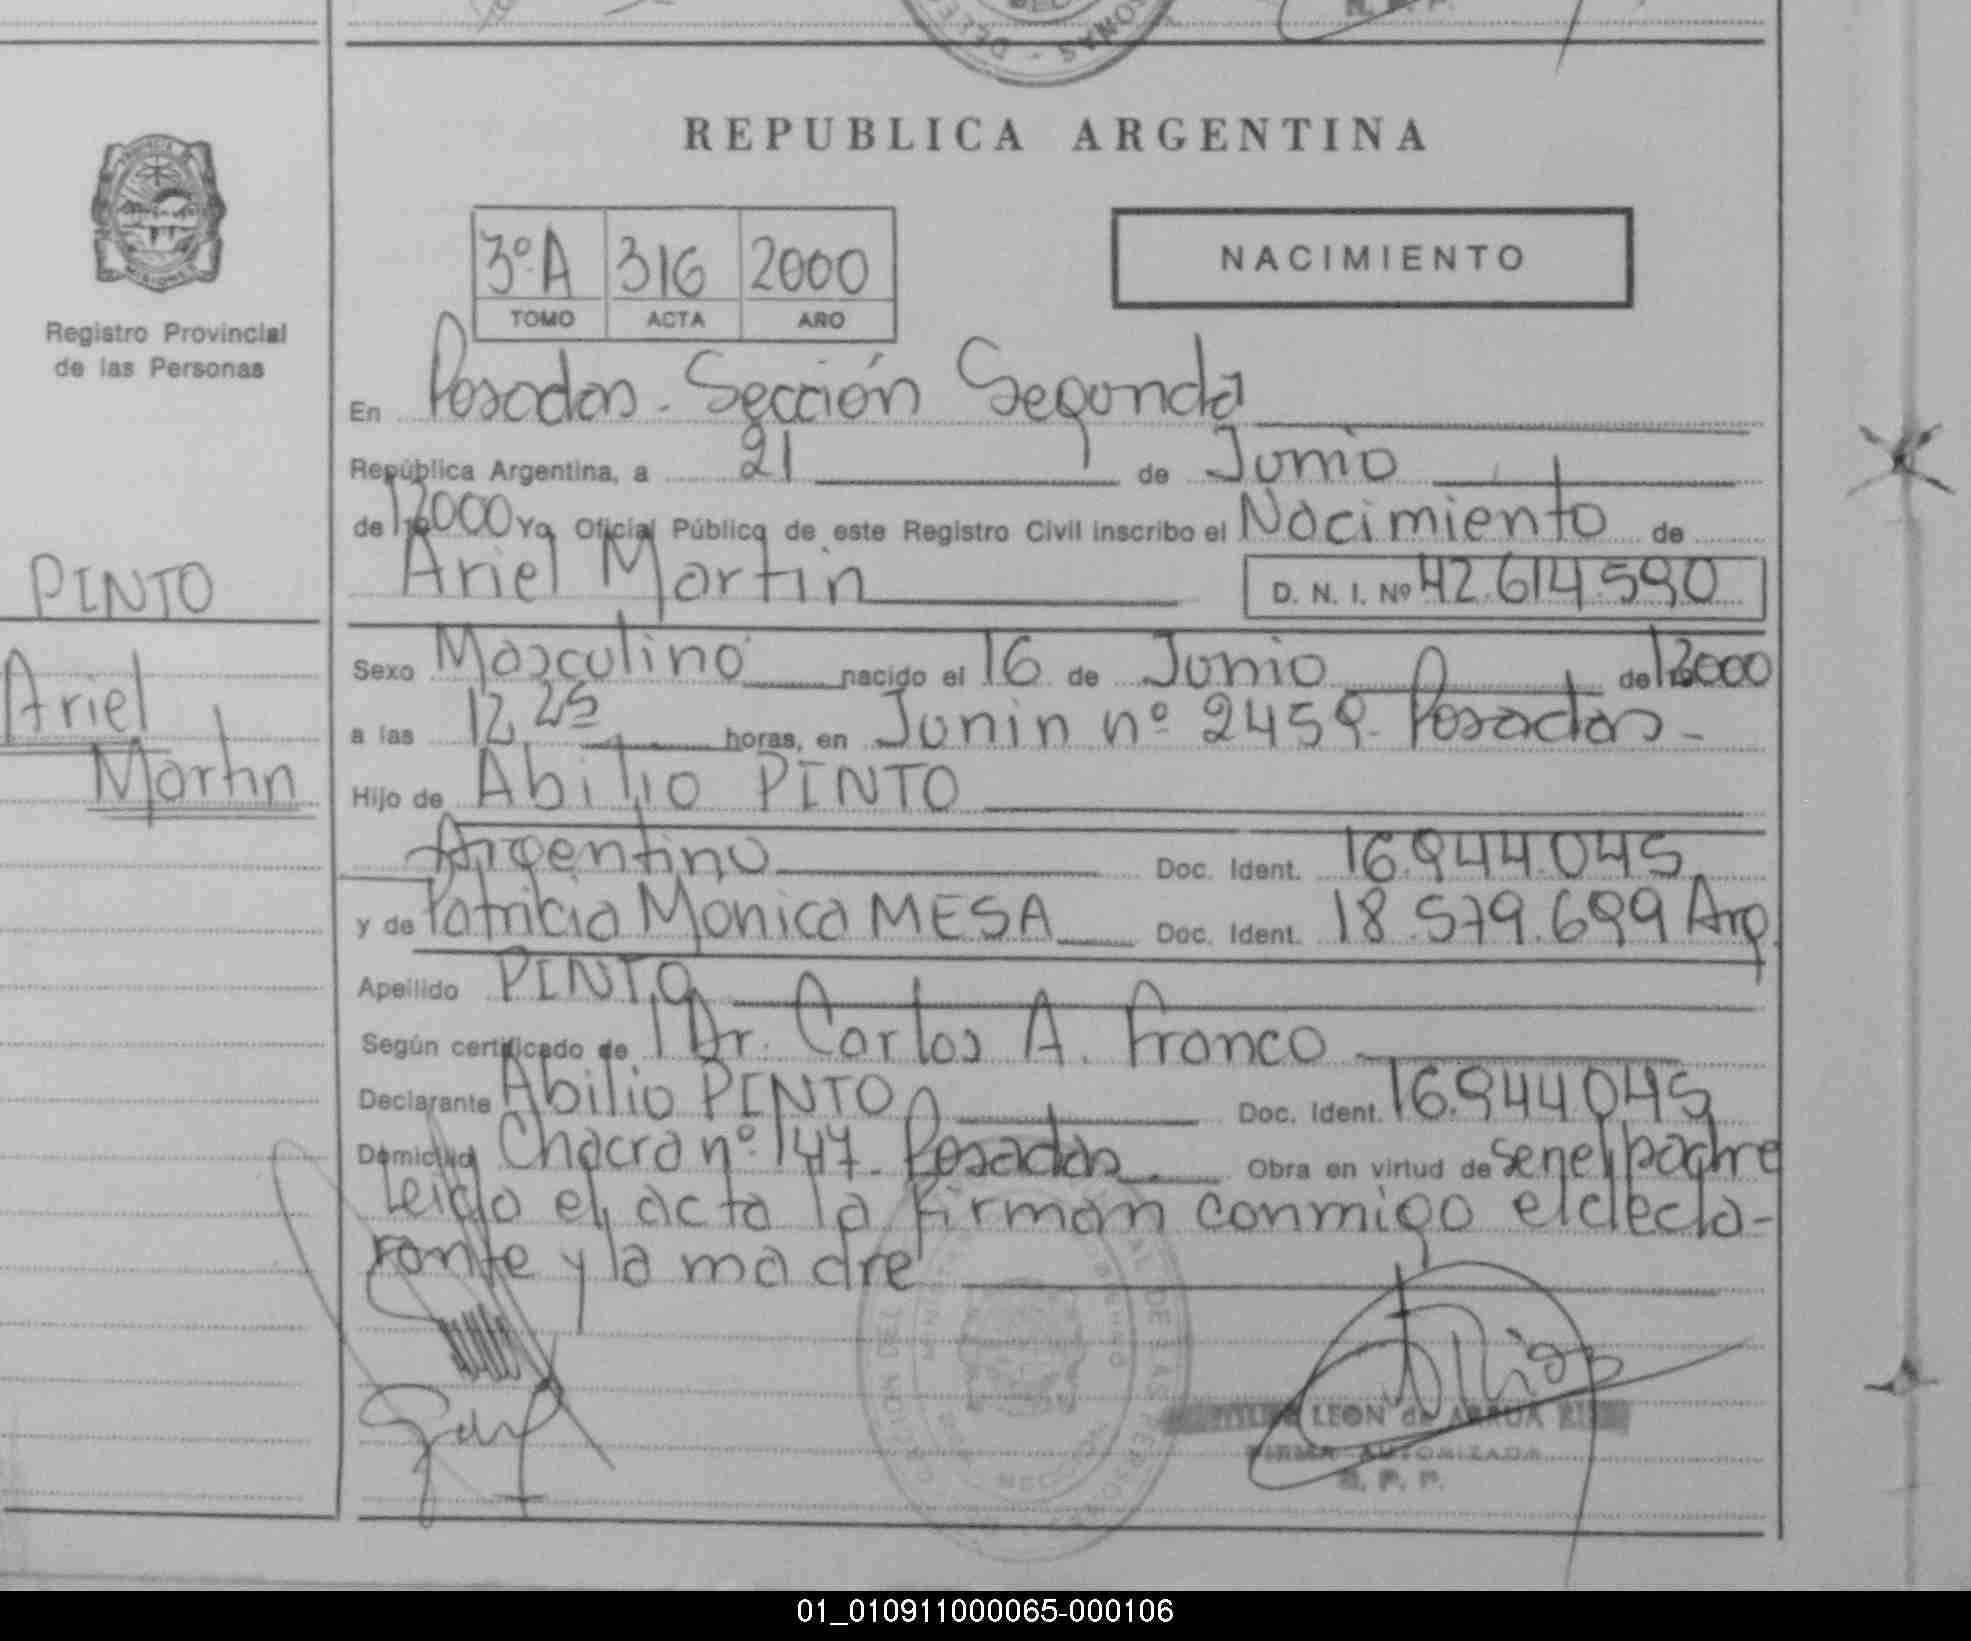 REPUBLICA ARGENTINA
3º A 316 2000
TOMO ACTA AÑO
NACIMIENTO
Registro Provincial
de las Personas
PINTO
Ariel
Martin
En Posadas - Sección Segunda
República Argentina, a 21 de Junio
de 2000 Yo Oficial Público de este Registro Civil inscribo el Nacimiento de
Ariel Martin D. N. I. Nº 42.614.590
Sexo Masculino nacido el 16 de Junio de 2000
a las 12,25 horas, en Junin nº 2459 - Posadas -
Hijo de Abilio PINTO
Argentino Doc. Ident. 16.944.045
y de Patricia Monica MESA Doc. Ident. 18.579.699 Arg.
Apellido PINTO
Según certificado de Dr. Carlos A. Franco
Declarante Abilio PINTO Doc. Ident. 16.944.045
Domicilio Chacra nº 147 - Posadas Obra en virtud de ser el padre
Leido el acta la firman conmigo el decla-
rante y la madre
LEON de ARRUA
FIRMA AUTORIZADA
R. P. P.
01_010911000065-000106